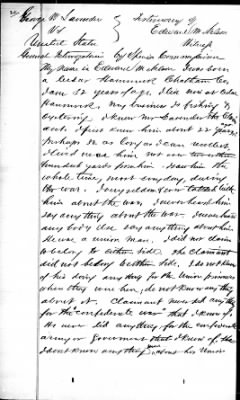 George W Saunders } Testimony of
Vs } Edward M. Nelson
United States } Witness
General Interrogatories by Special Commissioner
My Name is Edward M. Nelson I was born
at Cedar Hammock Chatham Co,
I am 52 years of age. I live now at Cedar
Hammock. My business is fishing &
oystering. I know Mr Saunders the Claim
ant. I have known him about 22 years
perhaps as long as I can recollect.
I lived near him not over two or three
hundred yards from him. I saw him the
whole time, most every day, during
the war. I very seldom ever talked with
him about the war. I never heard him
say any thing about the war. I never heard
any body else say anything about him.
He was a union man. I did not claim
to belong to either side. The claimant
did not belong to either side. I do not know
of his doing any thing for the Union prisoners
when they were here, do not know any thing
about it. Claimant never did any thing
for the "confederate war" that I know of.
He never did anything for the confederate
army or Government that I know of.
I dont know any thing about his Union